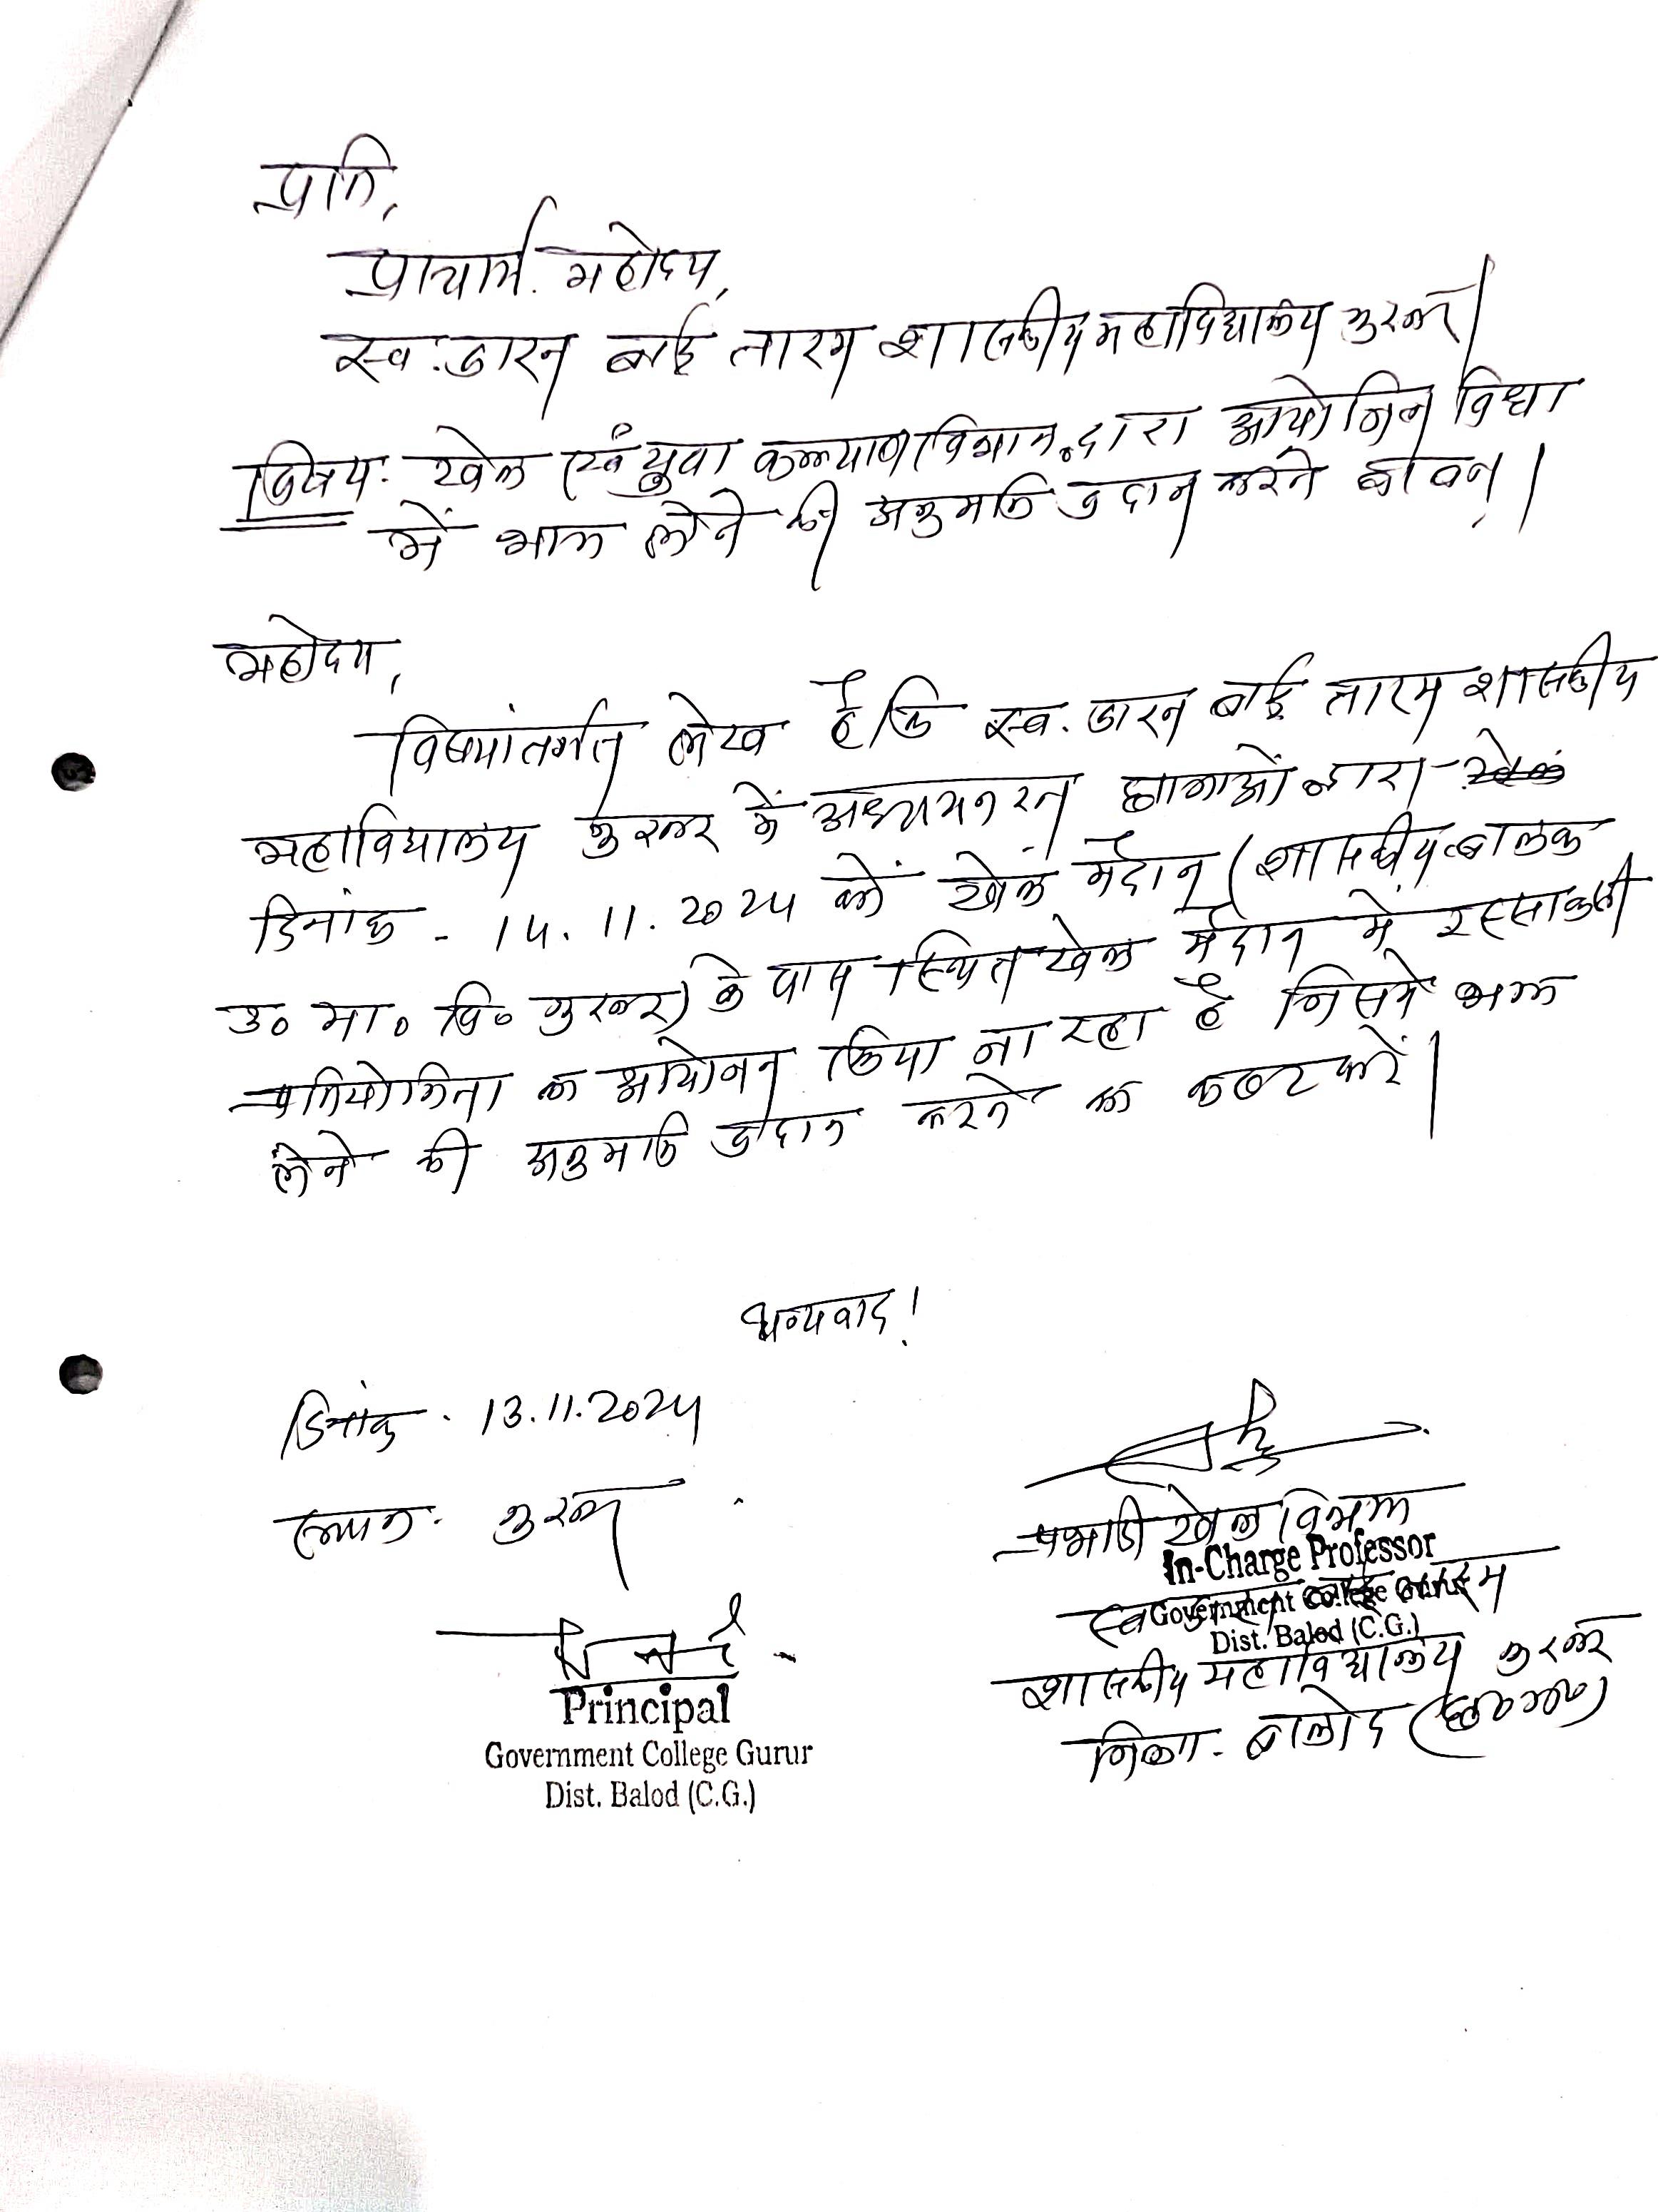 प्रति,
प्राचार्य महोदय,
स्व. डारन बाई तारम शासकीय महाविद्यालय गुरूर।
विषय:- खेल एवं युवा कल्याण विभाग द्वारा आयोजित विधा
में भाग लेने की अनुमति प्रदान करने बाबत्।
महोदय,
विषयांतर्गत लेख है कि स्व. डारन बाई तारम शासकीय
महाविद्यालय गुरूर में अध्ययनरत छात्राओं द्वारा
दिनांक - 14.11.2024 को खेल मैदान (शासकीय बालक
उ० मा० वि० गुरूर) के पास स्थित खेल मैदान में रस्साकसी
प्रतियोगिता का आयोजन किया जा रहा है जिसमें भाग
लेने की अनुमति प्रदान करने का कष्ट करें।
धन्यवाद!
दिनांक - 13.11.2024
स्थान - गुरूर
प्रभारी खेल विभाग
In-Charge Professor
स्व डारन बाई तारम
Government College Gurur
Dist. Balod (C.G.)
शासकीय महाविद्यालय गुरूर
जिला - बालोद (छ०ग०)
Principal
Government College Gurur
Dist. Balod (C.G.)